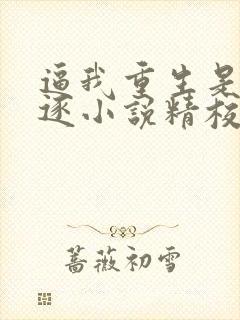 逼我重生是
逐小说精校
蔷薇初雪